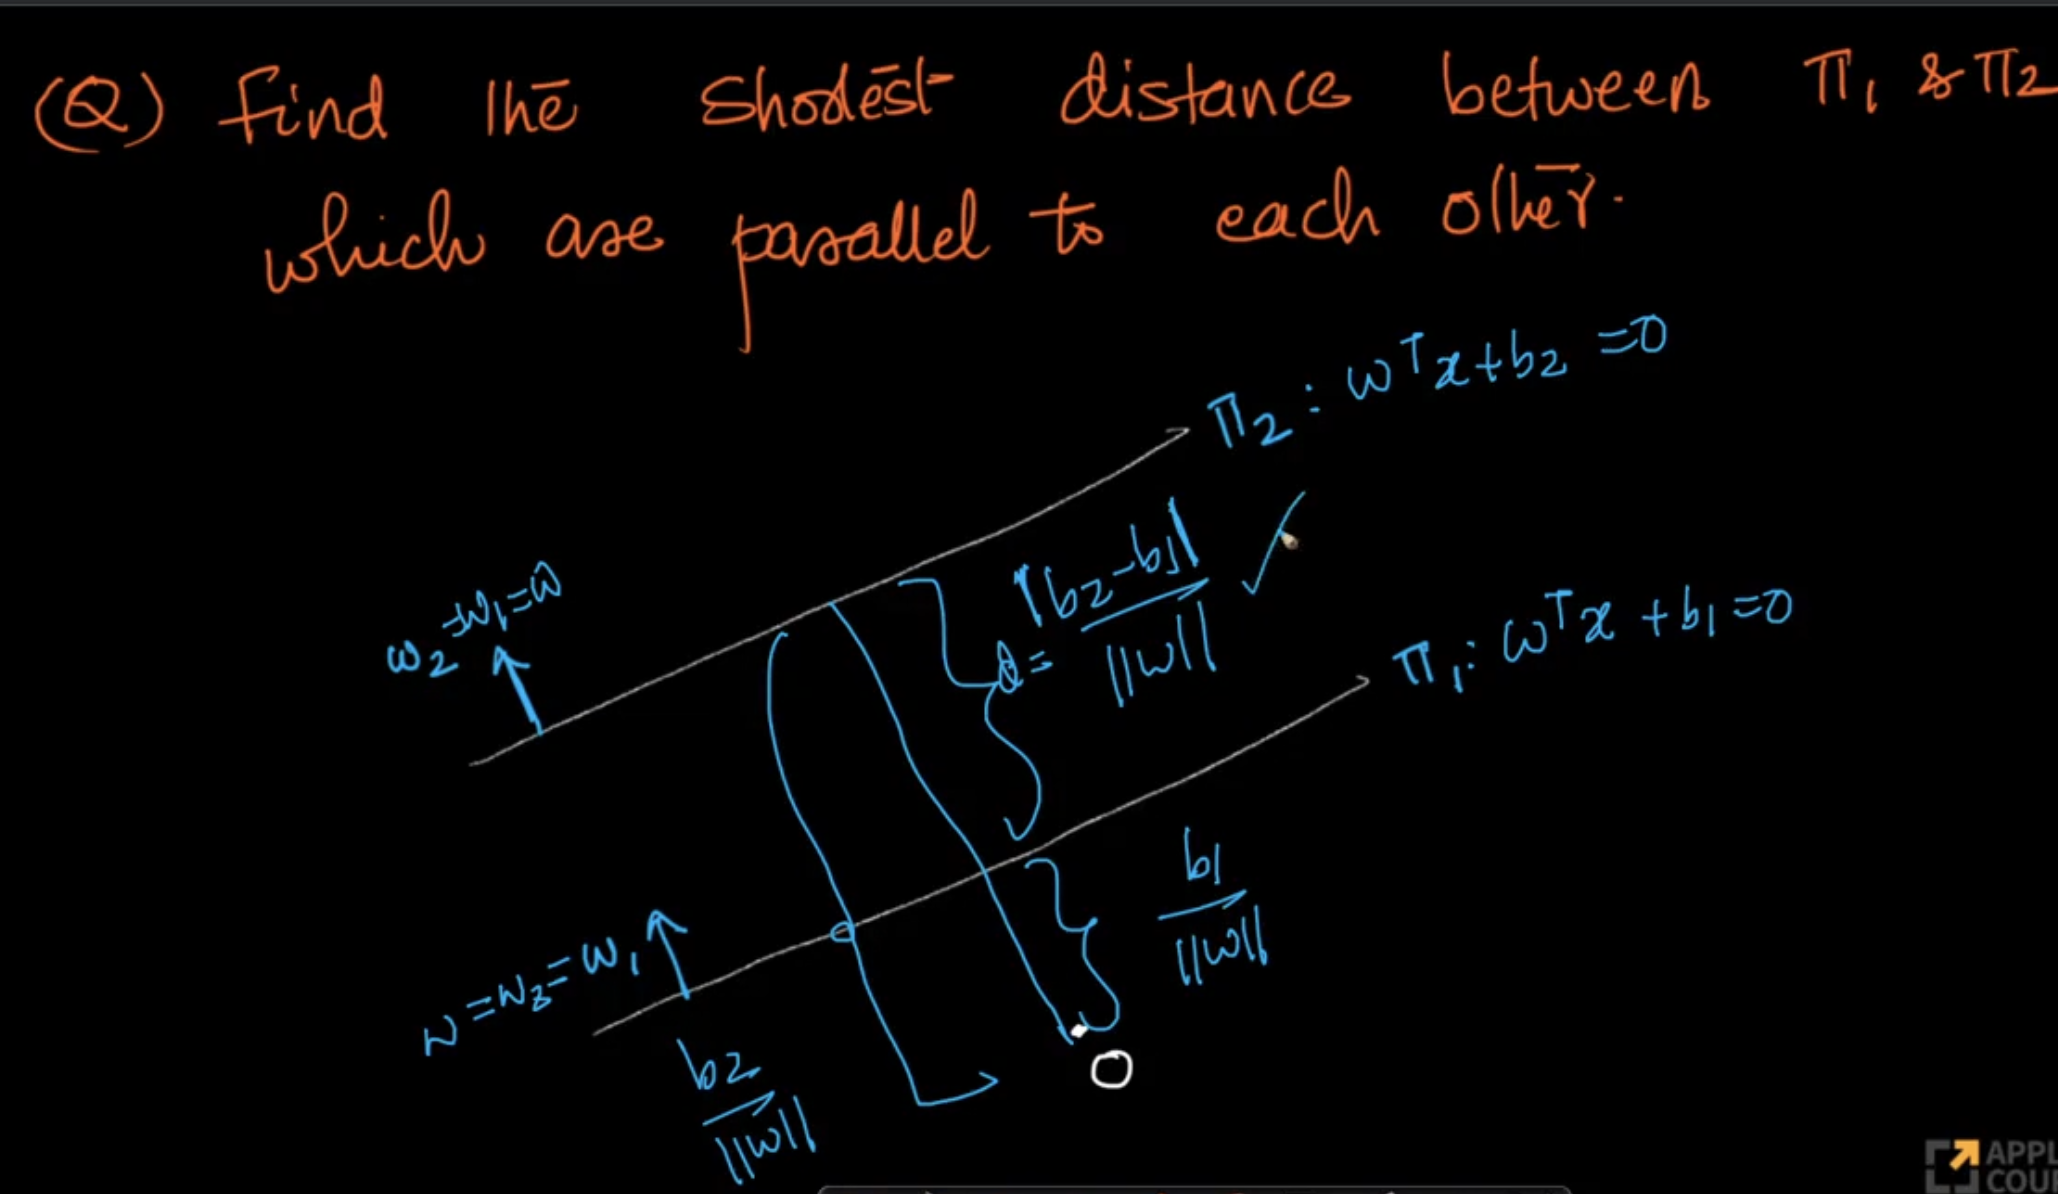 (Q) find the shortest distance between π₁ & π₂
which are parallel to each other.
π₂ : wᵀx + b₂ = 0
w₂ = w₁ = w
d = |b₂ - b₁| / ||w|| ✓
π₁ : wᵀx + b₁ = 0
b₁ / ||w||
w = w₂ = w₁
b₂ / ||w||
O
APPL
COU